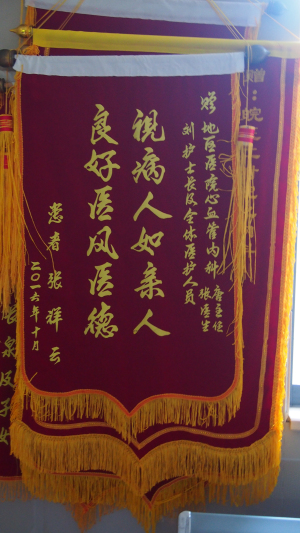 赠
地区医院心血管内科
唐主任
张医生
刘护士长及全体医护人员
視病人如亲人
良好医风医德
患者 张祥云
二〇一六年十月
赠: